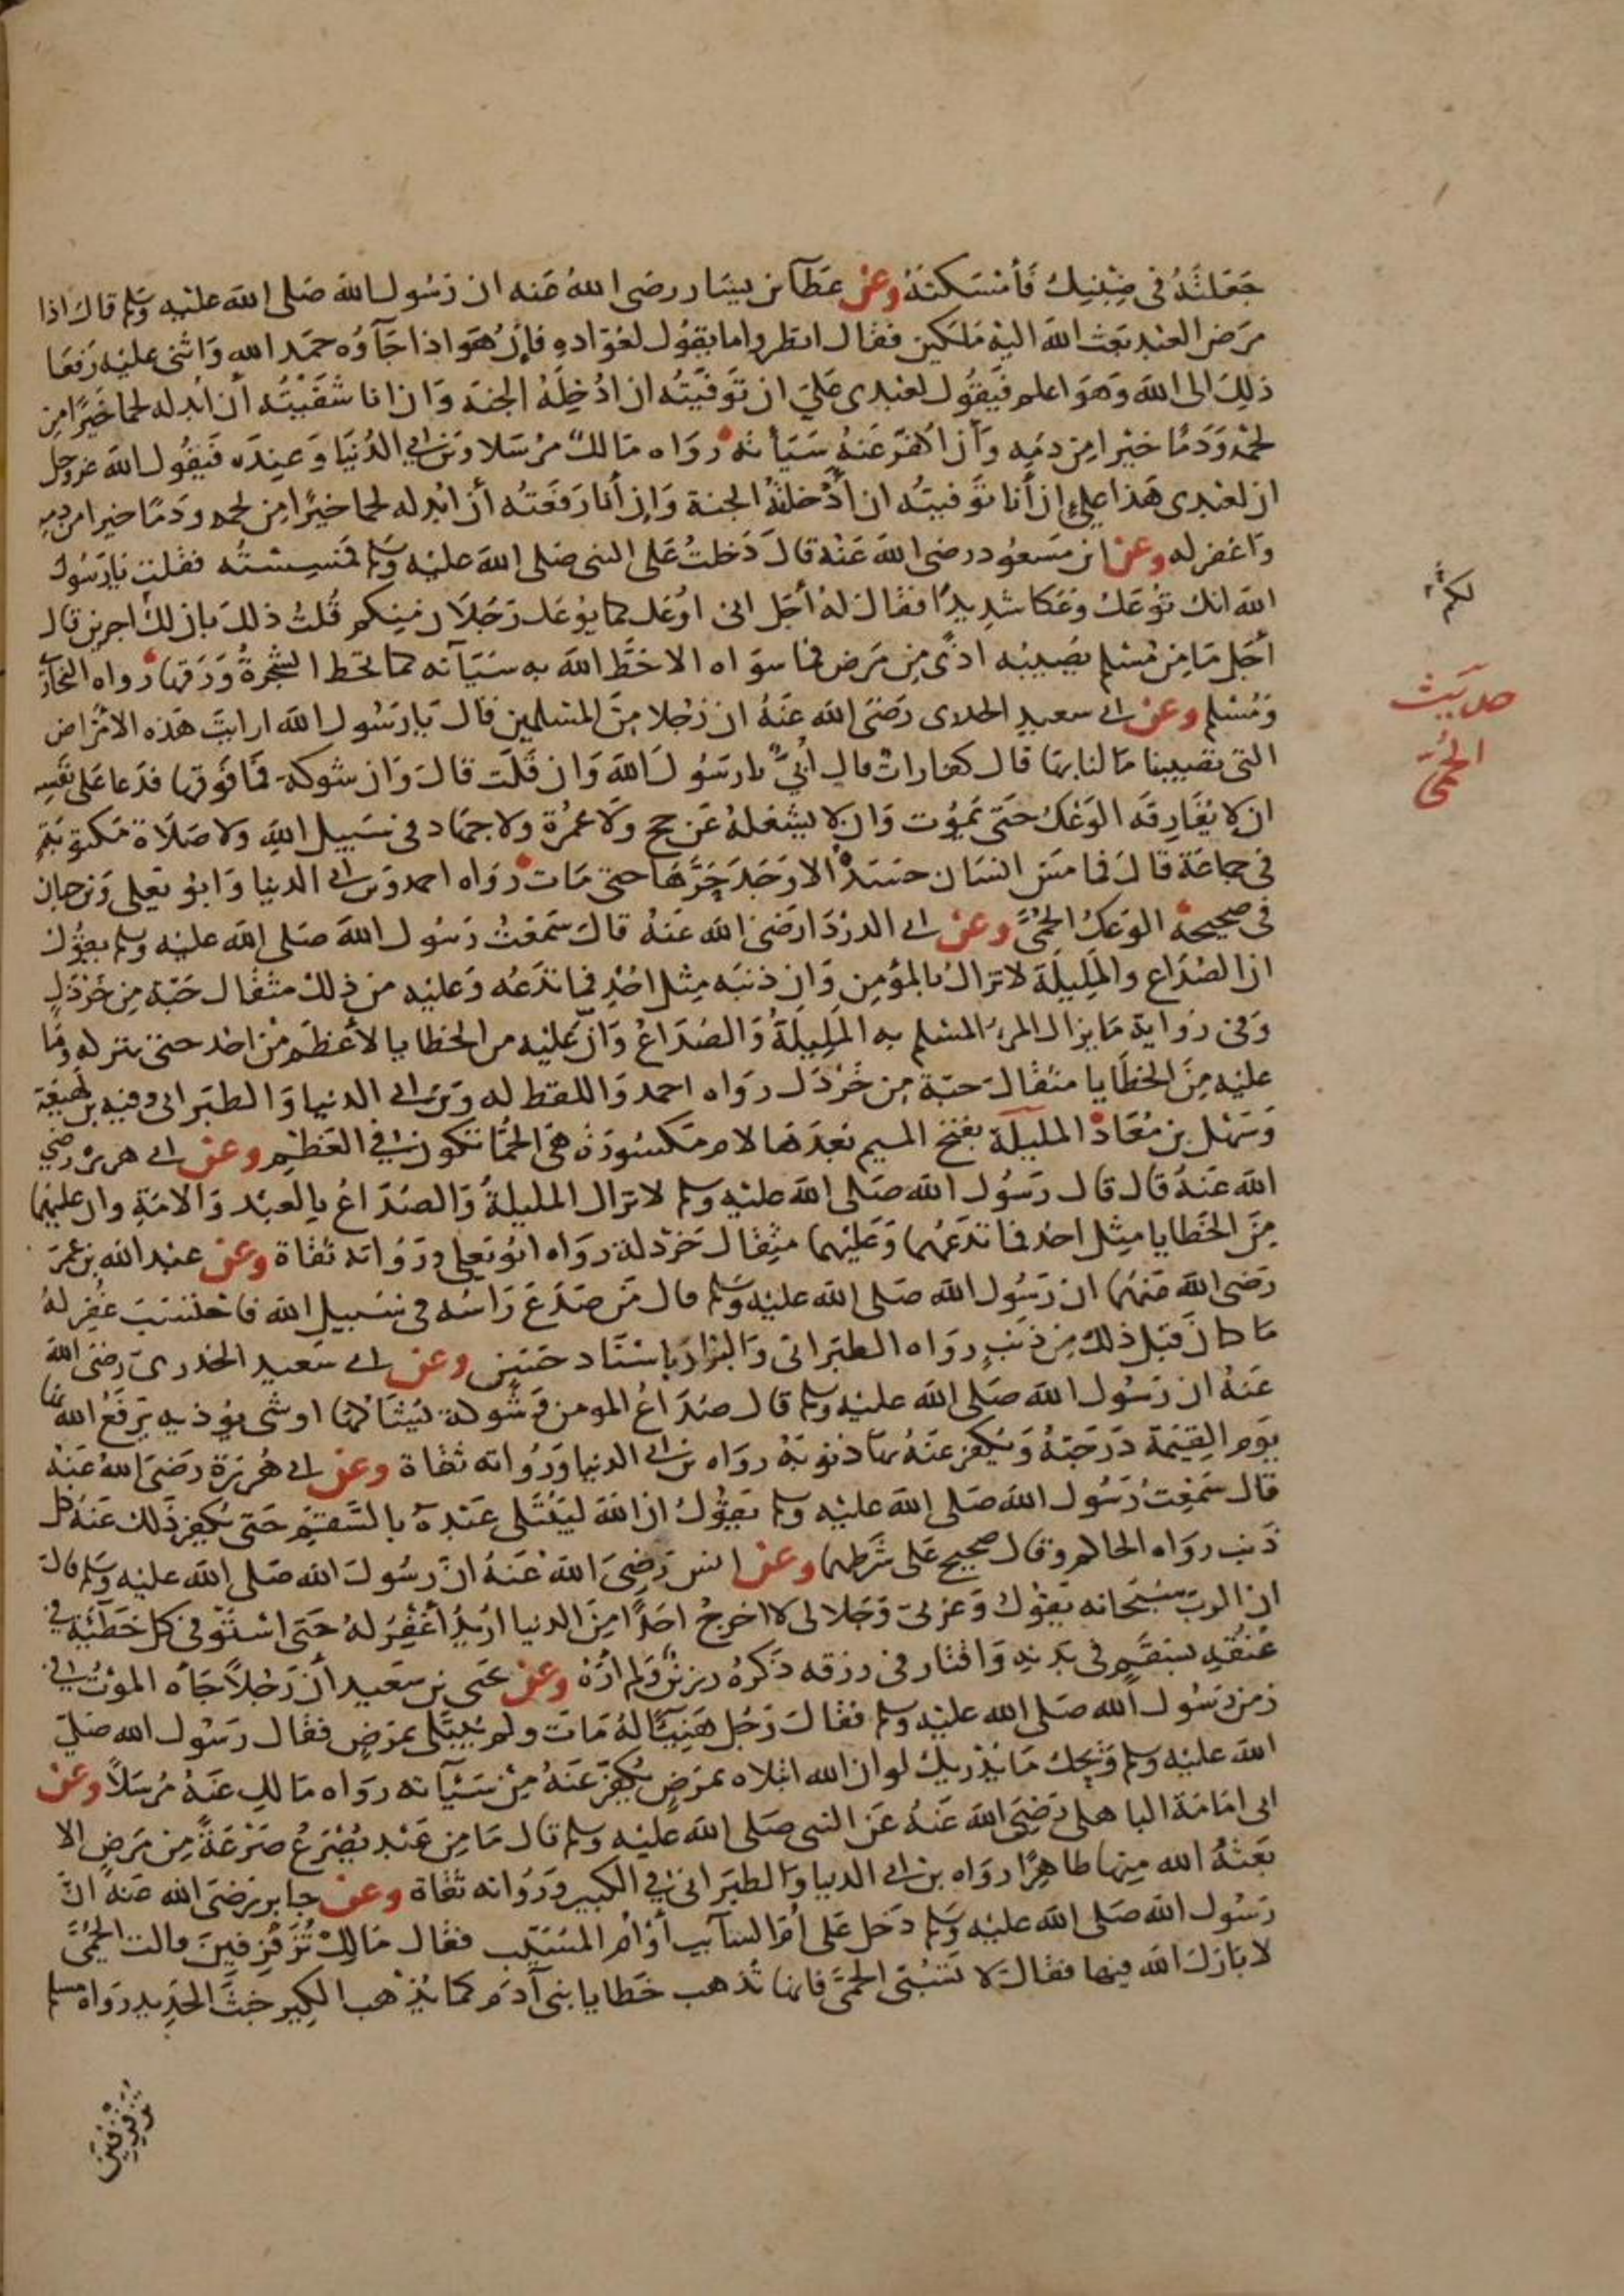 جَعَلتَهُ في ضِبْنِك فَأمْسَكتهُ وعن عطآ بن يسَار رضى اللهُ عنه ان رَسُول الله صَلى الله عليْهِ وَسَلم قال اذا
مرَض العبْد بَعث الله اليْهِ مَلكين فقال انظروا ما يقوُل لعُوّادهِ فإن هُوَ اذا جَآؤه حمَد اللهِ وَاثنى عليْه رَفعَا
ذلِكَ الى الله وَهوَ اعلم فيقوُل لعَبْدى عَليَّ ان تَوفيتُه ان ادُخِلهُ الجنة وَان انا شَفَيْتُه أن اُبدله لحما خَيرًا مِن
لحمْه وَدَمًا خيْرا من دمِه وَأن اكفرَ عَنهُ سَيَأته رَوَاه مَالكٌ مُرْسَلا وَبن ابي الدُنيَا وَعِندَه فيَقُول الله عز وجل
ان لعَبْدى هَذا عليَّ إن أنا توَفيتُه ان أدْخلهُ الجنة وَإن أنا رَفعَتُه أن ابدله لحما خيرًا من لحمه ودَمًا خيرا من دمه
وَاغفر له وعن ابن مَسعوُد رضى الله عَنهُ قالَ دَخلتُ عَلى النبى صَلى الله عليْه وَسَلم فمَسِسْتُه فقلت يَا رَسُول
الله انك تُوعَك وَعْكا شدِيدًا فقال لهُ أجَل انى اوُعَك كما يوُعَك رَجُلان مِنكم قُلتُ ذلك بان لك اجرين قال
أجَل مَا مِن مُسْلم يُصيبُه اذًى مِن مَرَض فما سوَاه الا حَطَّ الله به سَيَآته كما تحط الشجَرة وَرَقهَا رَوَاه البخآرى
وَمُسْلم وعن ابى سعيدٍ الخدرى رَضىَ الله عَنهُ ان رَجُلا مِنَ المسْلمين قال يَا رَسُول الله ارايتَ هَذه الامْرَاض
التى تصيبنا مَا لنا بهَا قال كفارات قال أُبيٌّ يا رسَوُل الله وَان قلَت قالَ وَان شوكة فمَا فوَقها فدَعا عَلى نفسِه
ان لا يُفَارقَه الوَعْك حتَى يَموُت وَان لا يشغلهُ عَن حجٍ وَلا عُمْرَة ولا جهَاد فى سَبيل اللهِ ولا صَلَاة مَكتوبَةٍ
فى جماعَة قالَ فما مَسّ انسَان جسَدهُ الا وَجَد حَرَّهَا حتى مَات رَوَاه احمد وَبن ابى الدنيا وَابوُ يَعلى وَبن حبان
فى صحيحهْ الوَعك الحُمَّى وعن ابى الدرْدَا رَضىَ الله عَنهُ قال سَمعْتُ رَسُول الله صَلى الله عليْهِ وَسَلم يقوُل
ان الصُدَاع والمَلِيلَة لا تزالُ بالمؤمِن وَان ذنبَه مِثل احُدٍ فما تَدَعُه وَعليْه من ذلك مثقال حَبّة مِن خَرْدَلٍ
وَفى رَوَاية مَا يزال المرءُ المسْلم به المَليلَةُ وَالصُدَاعُ وَانّ عَليْه من الخطايا لأعْظَم مْن احُد حتى تتركه وَمَا
عليْه مِنَ الخطَايا مثقال حَبّة مِن خَرْدَل رَوَاه احمد وَاللفظ له وَبن ابى الدنيا وَالطبَرانى وفيه بن لهيْعَة
وَسَهْل بن مُعَاذ المليلة بفتح الميم بَعدَها لام مَكسُورَة هىَ الحُمَّا تكون في العَظْمِ وعن ابى هريرة رضى
الله عَنهُ قال قال رَسُول الله صَلى الله عليْهِ وَسلم لا تزال المليلةُ وَالصُدَاعُ بالعبْد وَالامَةِ وان عليْهما
مِنَ الخَطايا مِثل احُد فما تَدَعُهُما وَعَليْهما مثقال خَرْدَلة رَوَاه ابُو يَعلى ورَوُاته ثقاة وعن عبْد الله بن عُمرَ
رَضى الله عَنهمَا ان رَسُول الله صَلى الله عليْه وَسَلم قال مَن صُدّعَ رَاسُه فى سَبيل الله فاحْتسَب غُفر لهُ
مَا كانَ قبل ذلك مِن ذنبٍ رَوَاه الطبَرانى وَالبَزار باسنَاد حَسَنٍ وعن ابى سَعيد الخدرىّ رَضىَ الله
عَنهُ ان رَسُول الله صَلى الله عليْهِ وَسلم قال صُدَاعُ المومن وَشوكة يُشَاكُها او شى يوُذيهِ يَرفعُ الله بها
يوَم القِيَمة دَرَجَتهُ وَيُكفر عَنهُ بهَا ذنوُبَهُ رَوَاه بن ابى الدنيا وَرُوَاته ثقاة وعن ابى هُرَيْرَة رَضىَ اللهُ عَنهُ
قال سَمْعتُ رَسُول الله صَلى الله عليْهِ وَسلم يقوُل ان اللهَ ليَبْتَلى عَبْدَهُ بالسَّقمِ حَتى يُكفِر ذَلك عَنهُ كل
ذنبٍ رَوَاه الحاكم وقال صحيحٌ عَلى شَرْطهما وعن انس رَضِىَ الله عَنهُ انّ رسُولَ الله صَلى الله عليْه وَسَلم قال
ان الربّ سُبْحَانه يَقوُل وَعزتى وَجَلالى لا اخرجُ احَدًا مِنَ الدنيا ارُيدُ أغفِرُ لهُ حَتى اسْتوَفى كل خَطَيئةٍ فى
عُنقهِ بسَقمٍ فى بَدنهِ وَاقتار فى رزقه ذكرَهُ رزينٌ وَلم ارَهُ وعن يحَيى بن سَعيد أن رَجُلاً جَآه الموْتُ في
زمن رَسُول الله صَلى الله عليْهِ وَسلم فقالَ رَجُل هَنيئًا لهُ مَات ولم يُبتَلى بمَرَضٍ فقال رَسُول الله صَلىّ
الله عليْه وَسلم وَيْحك مَا يُدْريكَ لو ان الله ابْتلاه بمَرَضٍ يُكفرّ عَنهُ مِنْ سَيْآته رَوَاه مَالك عَنهُ مُرسَلاً وعن
ابى امَامَة الباهلى رَضِىَ الله عَنهُ عَن النبى صَلى الله عَليْهِ وَسلم قال مَا مِن عَبْد يُصْرَعُ صَرْعَةً مِن مَرَض الا
بَعَثهُ الله مِنها طاهرًا رَوَاه بن ابى الدنيا وَالطبَرانى في الكبير وَرُوَاته ثقاة وعن جابر رَضىَ الله عَنهُ انَّ
رَسُول الله صَلى الله عليْه وَسَلم دَخل عَلى أمّ السآيب أوْ أم المسَيّب فقال مَالِكْ تُزَفزِفينَ قالت الحُمّى
لا بَارَك الله فيها فقال لا تَسُبّى الحمّى فانها تُذهب خَطايا بنى آدَم كما يُذْهب الكِير خَبثَ الحَدِيد رَوَاه مسلم
حديث
الحُمّى
تزفزفين